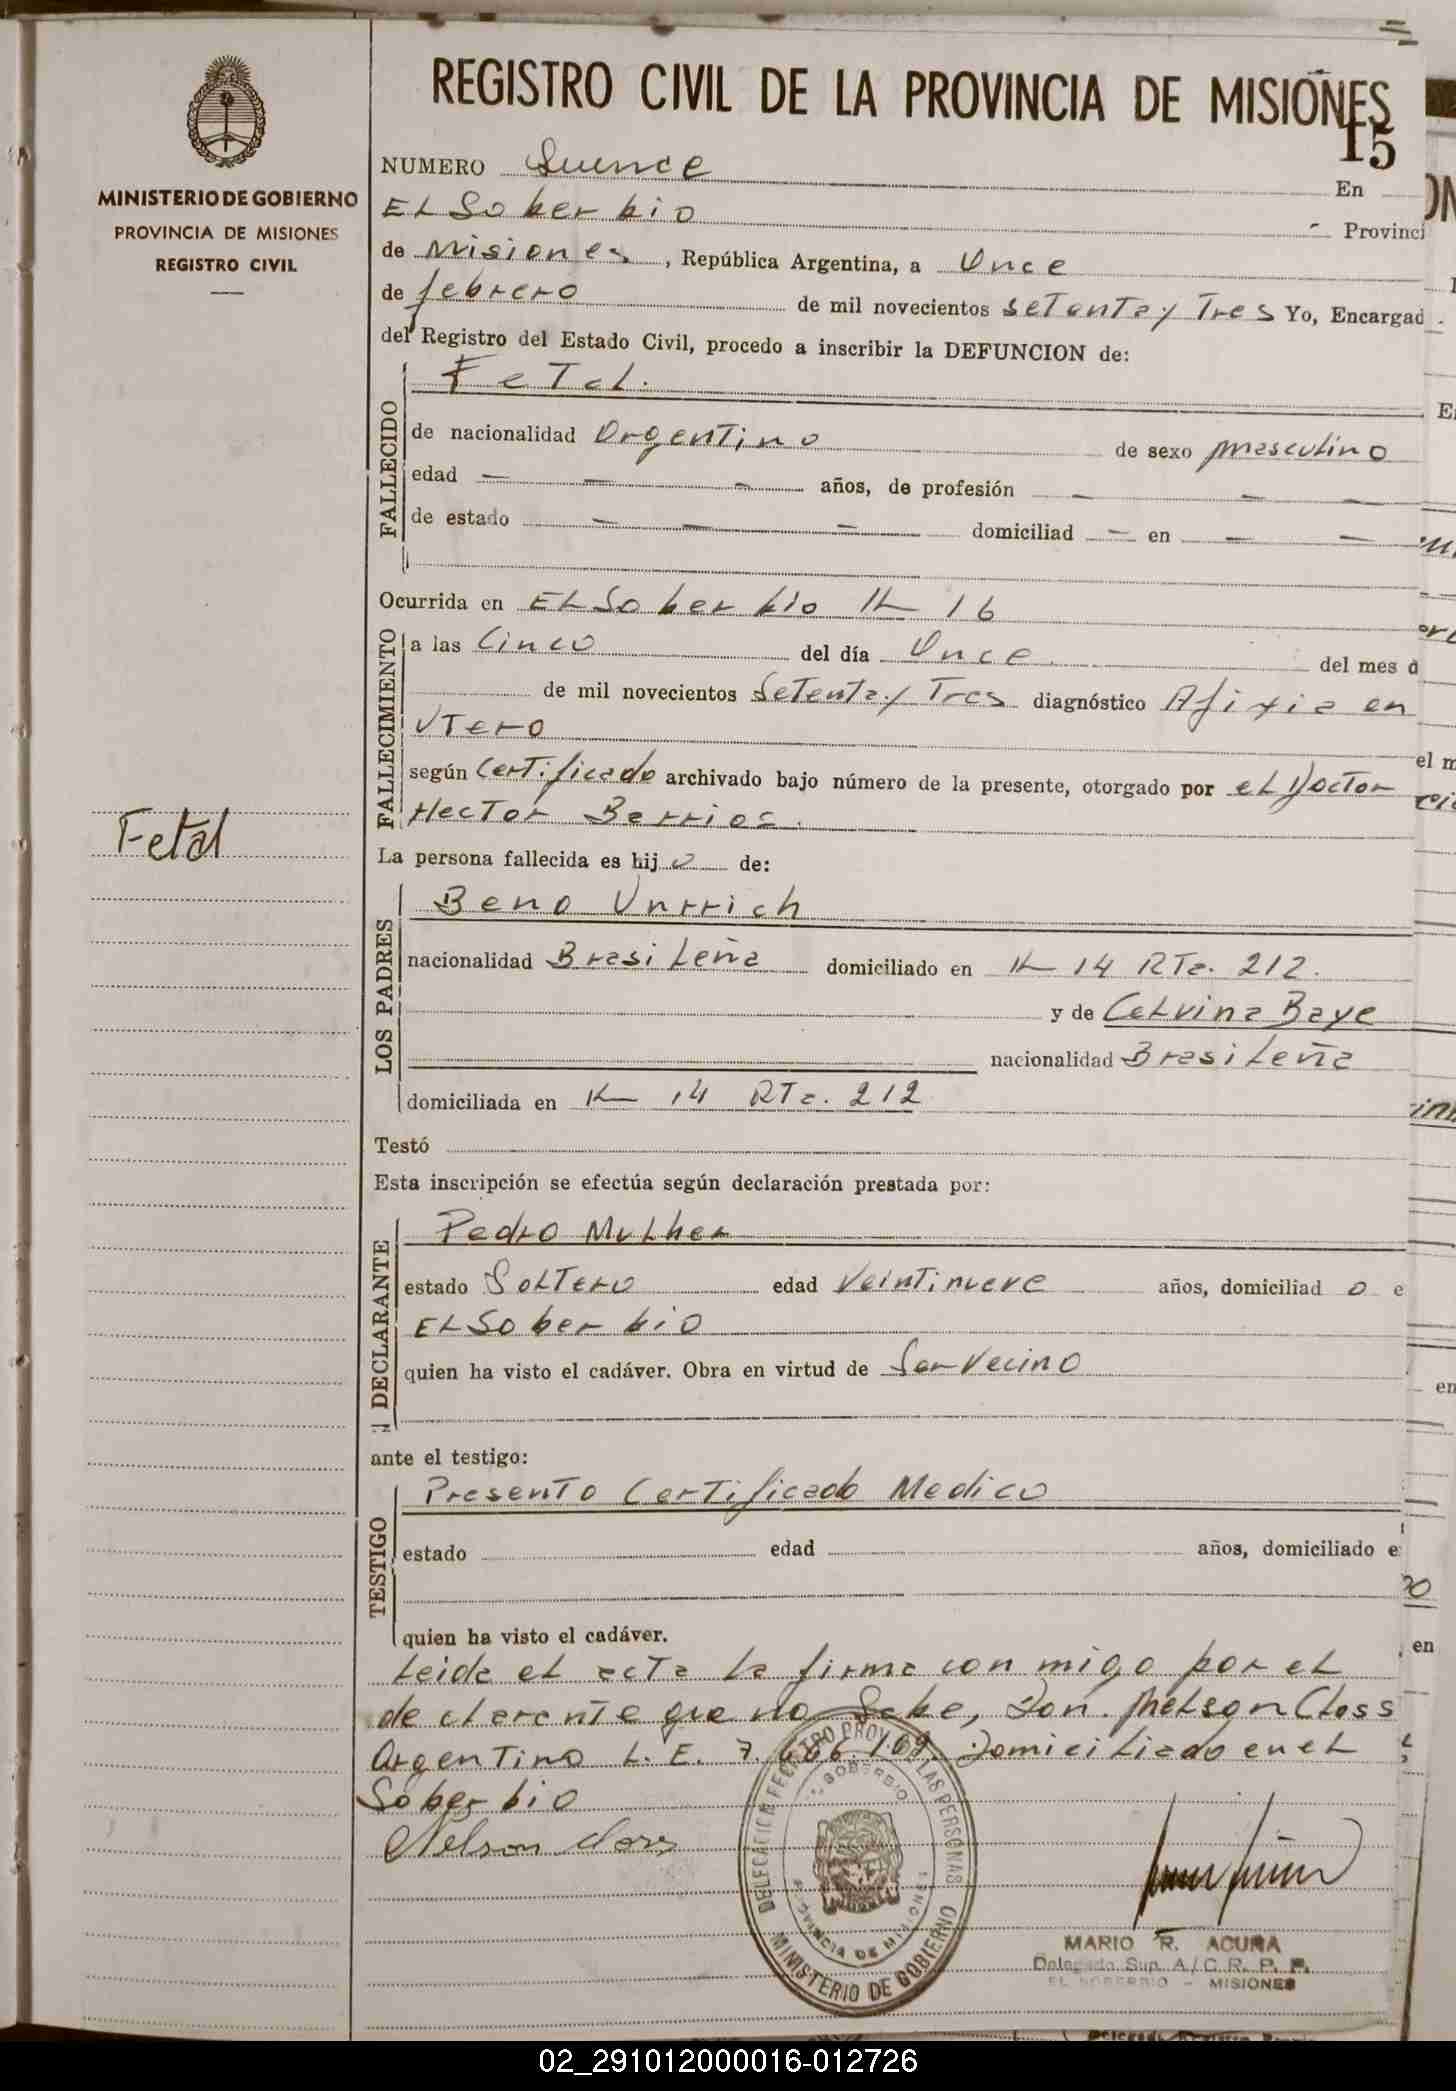 REGISTRO CIVIL DE LA PROVINCIA DE MISIONES
15
MINISTERIO DE GOBIERNO
PROVINCIA DE MISIONES
REGISTRO CIVIL
NUMERO Quince En
EL Soberbio Provinci
de Misiones, República Argentina, a Once
de febrero de mil novecientos Setenta y Tres Yo, Encargad
del Registro del Estado Civil, procedo a inscribir la DEFUNCION de:
FALLECIDO
FeTal.
de nacionalidad Argentino de sexo masculino
edad — — — años, de profesión — — —
de estado — — — domiciliad — en — —
Ocurrida en EL Soberbio K 16
FALLECIMIENTO
a las Cinco del día Once del mes d
de mil novecientos Setenta y Tres diagnóstico Afixia en
UTero
según Certificado archivado bajo número de la presente, otorgado por el Doctor
Hector Berrios.
Fetal
La persona fallecida es hijo de:
LOS PADRES
Beno Unrrich
nacionalidad Brasileña domiciliado en K 14 RTa. 212.
y de Celvina Baye
nacionalidad Brasileña
domiciliada en K 14 RTa. 212
Testó
Esta inscripción se efectúa según declaración prestada por:
DECLARANTE
Pedro Mulher
estado Soltero edad Veintinueve años, domiciliad o e
EL Soberbio
quien ha visto el cadáver. Obra en virtud de Ser Vecino
ante el testigo:
TESTIGO
Presento Certificado Medico
estado edad años, domiciliado e
quien ha visto el cadáver.
Leida el acta la firma con migo por el
declarante que no Sabe, Don. Nelson Closs
Argentino L. E. 7. 169. Domiciliado en el
Soberbio
Nelson Closs
DELEGACION REGISTRO PROV. LAS PERSONAS
SOBERBIO
PROVINCIA DE MISIONES
MINISTERIO DE GOBIERNO
MARIO R. ACUÑA
Delegado Sup. A/C R. P. P.
EL SOBERBIO - MISIONES
02_291012000016-012726